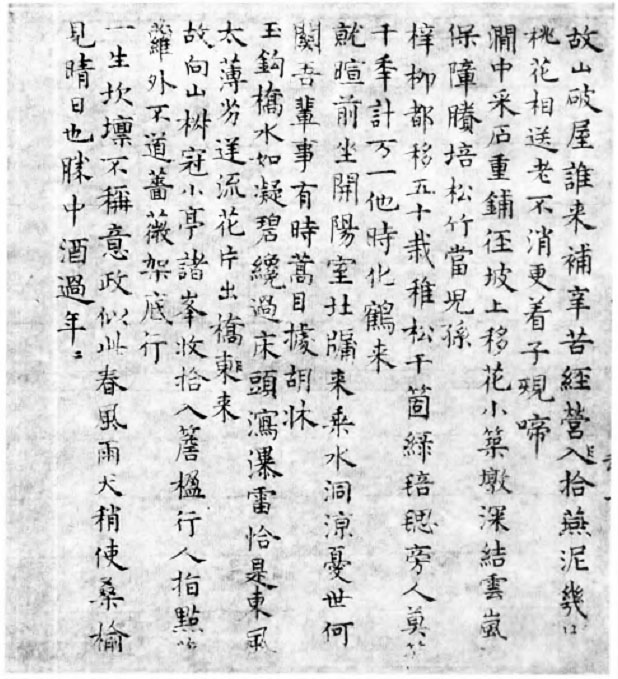 故山破屋誰來補辛苦經營入拾燕泥幾口
桃花相送老不消更着子規啼
澗中采石重鋪徑坡上移花小築墩深結雲嵐
保障牘培松竹當児孫
梓柳都移五十栽稚松千箇綠培聰旁人莫笑
千季計万一他時化鶴来
就暄前坐開陽室壯牖来乘水洞涼憂世何
関吾輩事有時蒿目據胡牀
玉鈎橋水如凝碧纔過床頭瀉瀑雷恰是東風
太薄劣逆流花片出橋東来
故向山椒冠小亭諸峯收拾入簷楹行人指點
蘿外不道薔薇架底行
一生坎壈不稱意政似此春風雨天稍使桑榆
見晴日也勝中酒過年〻